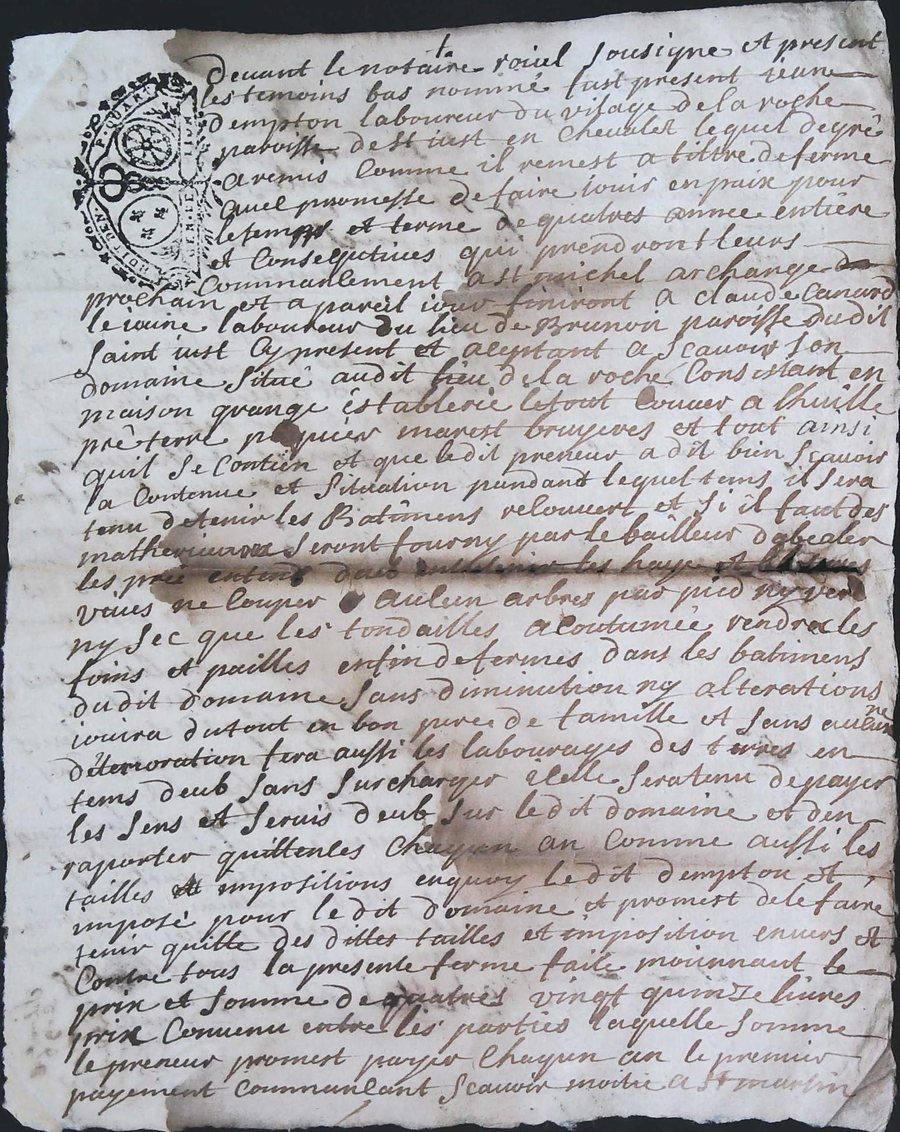 P. QUART
devant le notaire roiel sousigne et present
les temoins bas nommé fust present jean
dempton laboureur du vilage de la roche
paroisse de st iust en chevalet lequel de gré
a remis comme il remest a tittre de ferme
avel promesse de faire iouir en paix pour
le temps et terme de quatres année entiere
et consequtives qui prendront leurs
commanlement a st michel archange
prochain et a pareil iour finiront a claude Canard
le ioune laboureur du lieu de Brunon paroisse dudit
saint iust cy present et aceptant a scavoir son
domaine situé audit lieu de la roche consistant en
maison grange establerie le tout couver a lhuille
pré terre paquier marest bruyeres et tout ainsi
quil se contien et que ledit preneur a dit bien scavoir
la contenue et situation pandant lequel tems il sera
tenu de tenir les Batimens relouvert et si il faut des
matheriaux seront fourny par le bailleur dabealer
les pree les haye et
vaues ne couper aulun arbres par pied ny vert
ny sec que les tondailles acoutumée rendra les
foins et pailles en fin de fermes dans les batimens
dudit domaine sans diminution ny alterations
iouira du tout en bon peree de famille et sans aulune
déterioration fera aussi les labourages des terres en
tems deub sans surcharger icelle sera tenu de payer
les sens et servis deub sur le dit domaine et den
raporter quittenles chaqun an comme aussi les
tailles et impositions enquoy le dit dempton et
imposé pour le dit domaine et promest de le faire
tenir quitte des dittes tailles et imposition envers et
contre tous la presente ferme faite moiennant le
prix et somme de quatres vingt quinze livres
prix convenu entre les parties laquelle somme
le preneur promest payer chaqun an le premier
payement commanlant scavoir moitie a st martin